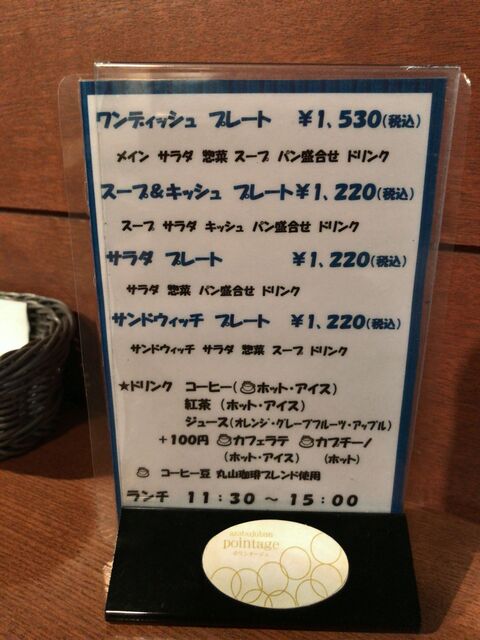 ワンディッシュ プレート ￥1,530(税込)
メイン サラダ 惣菜 スープ パン盛合せ ドリンク
スープ&キッシュ プレート￥1,220(税込)
スープ サラダ キッシュ パン盛合せ ドリンク
サラダ プレート ￥1,220(税込)
サラダ 惣菜 パン盛合せ ドリンク
サンドウィッチ プレート ￥1,220(税込)
サンドウィッチ サラダ 惣菜 スープ ドリンク
★ドリンク コーヒー(♨ホット・アイス)
紅茶 (ホット・アイス)
ジュース(オレンジ・グレープフルーツ・アップル)
+100円 ♨カフェラテ ♨カプチーノ
(ホット・アイス) (ホット)
♨ コーヒー豆 丸山珈琲ブレンド使用
ランチ 11:30 ～ 15:00
azabujuban
pointage
ポワンタージュ